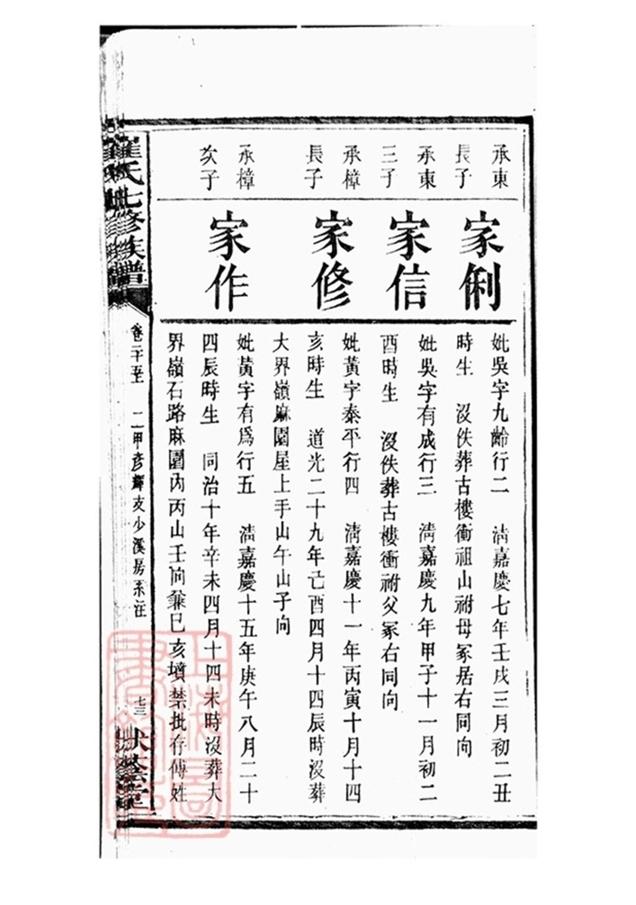 承東
長子
家俐
妣吳字九齡行二　清嘉慶七年壬戌三月初二丑
時生　沒佚葬古樓衝祖山祔母冢居右同向
承東
三子
家信
妣吳字有成行三　清嘉慶九年甲子十一月初二
酉時生　沒佚葬古樓衝祔父冢右同向
承樟
長子
家修
妣黃字泰平行四　清嘉慶十一年丙寅十月十四
亥時生　道光二十九年己酉四月十四辰時沒葬
大界嶺麻園屋上手山午山子向
承樟
次子
家作
妣黃字有為行五　清嘉慶十五年庚午八月二十
四辰時生　同治十年辛未四月十四未時沒葬大
界嶺石路麻園內丙山壬向兼巳亥墳禁批存傅姓
氏七修族譜
卷二十五至　二甲彥輝支少溪房系注
七三
堂